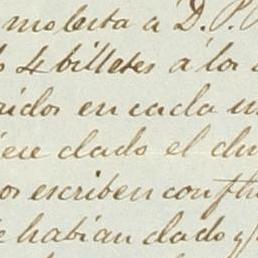 molesta a D. P.
4 billetes á los
en cada
dado el
os escriben con
habían dado y